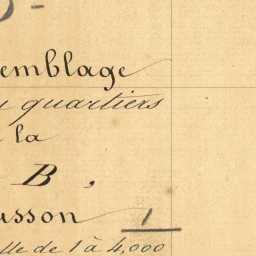 emblage
quartiers
la
B,
usson 1
lle de 1 à 4,000